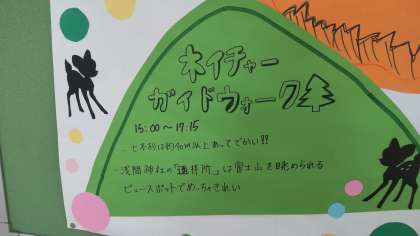 ネイチャー
ガイドウォーク
15:00〜17:15
・七本杉は約40m以上あってでかい!!
・浅間神社の「遥拝所」は富士山を眺められる
ビュースポットでめっちゃきれい